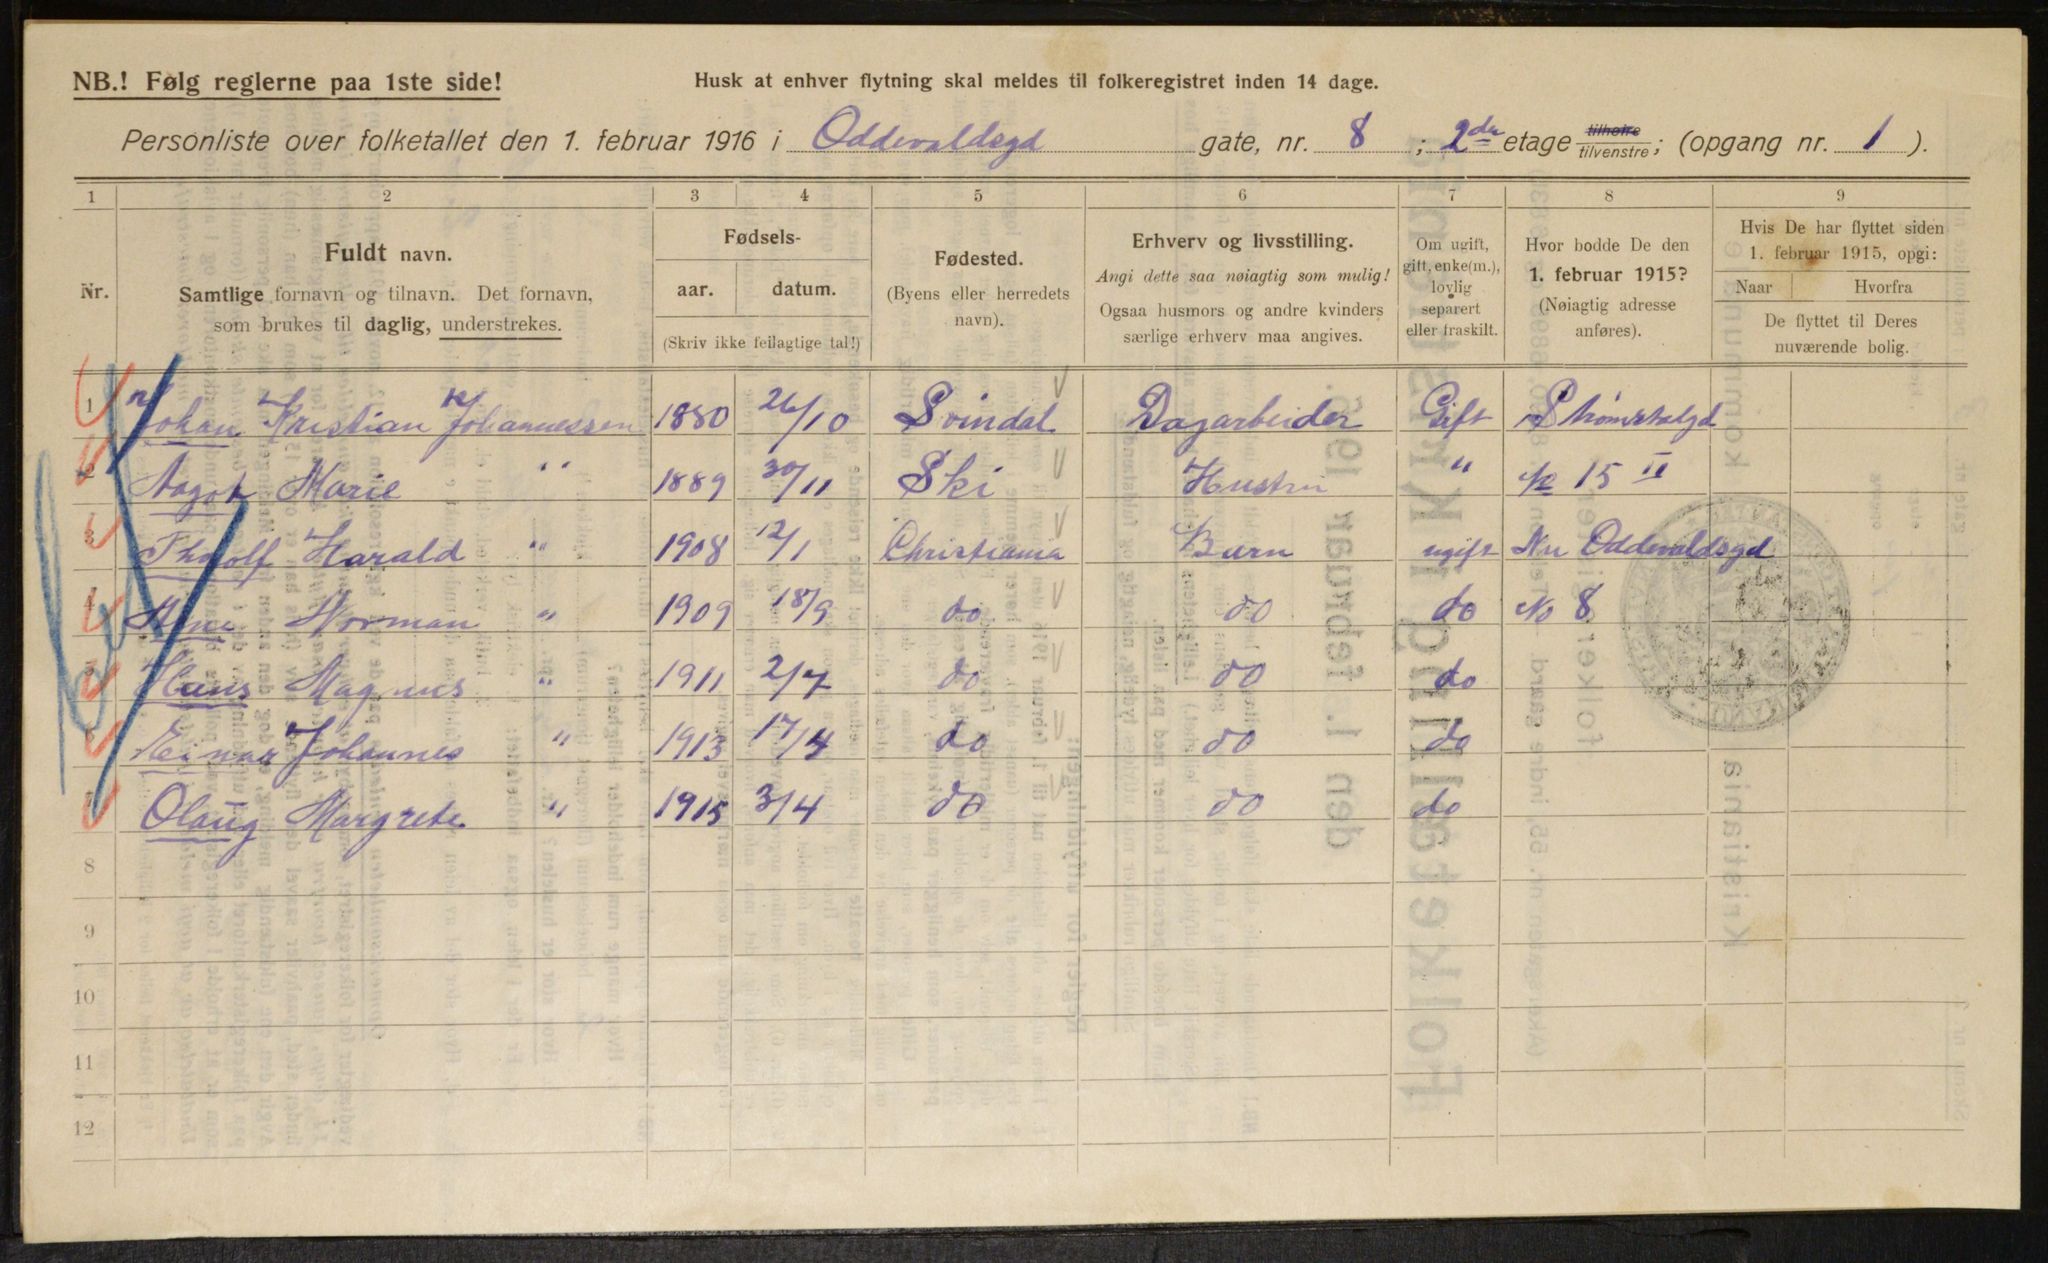 NB.! Følg reglerne paa 1ste side!
Husk at enhver flytning skal meldes til folkeregistret inden 14 dage.
Personliste over folketallet den 1. februar 1916 i Oddevaldsgd gate, nr. 8 ; 2den etage tilhøire tilvenstre; (opgang nr. 1 ).
1 2 3 4 5 6 7 8 9
Nr.
Fuldt navn.
Samtlige fornavn og tilnavn. Det fornavn,
som brukes til daglig, understrekes.
Fødsels-
aar. datum.
(Skriv ikke feilagtige tal!)
Fødested.
(Byens eller herredets
navn).
Erhverv og livsstilling.
Angi dette saa nøiagtig som mulig!
Ogsaa husmors og andre kvinders
særlige erhverv maa angives.
Om ugift,
gift, enke(m.),
lovlig
separert
eller fraskilt.
Hvor bodde De den
1. februar 1915?
(Nøiagtig adresse
anføres).
Hvis De har flyttet siden
1. februar 1915, opgi:
Naar Hvorfra
De flyttet til Deres
nuværende bolig.
1 Johan Kristian Johannessen 1880 26/10 Svindal Dagarbeider Gift Strømstadgd
2 Aagot Marie " 1889 30/11 Ski Hustru " No 15 II
3 Thorolf Harald " 1908 12/1 Christiania Barn ugift Nu Oddevaldsgd
4 Arne Norman " 1909 18/9 do do do No 8
5 Hans Magnus " 1911 2/7 do do do
6 Einar Johannes " 1913 17/4 do do do
7 Olaug Margrete " 1915 3/4 do do do
8
9
10
11
12